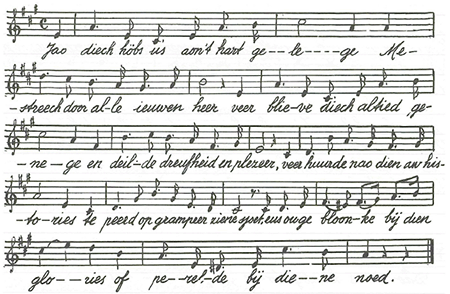 Jao diech höbs us aon't hart ge-le----ge Me-
-streech door al-le ieuwen heer veer blie-ve diech altied ge-
ne--ge en deil-de dreufheid en plezeer, veer huurde nao dien aw his-
-to-ries te peerd op grampeer ziene sjoet, eus ouge bloon-ke bij dien
glo---ries of pe--rel-de bij die--ne noed.